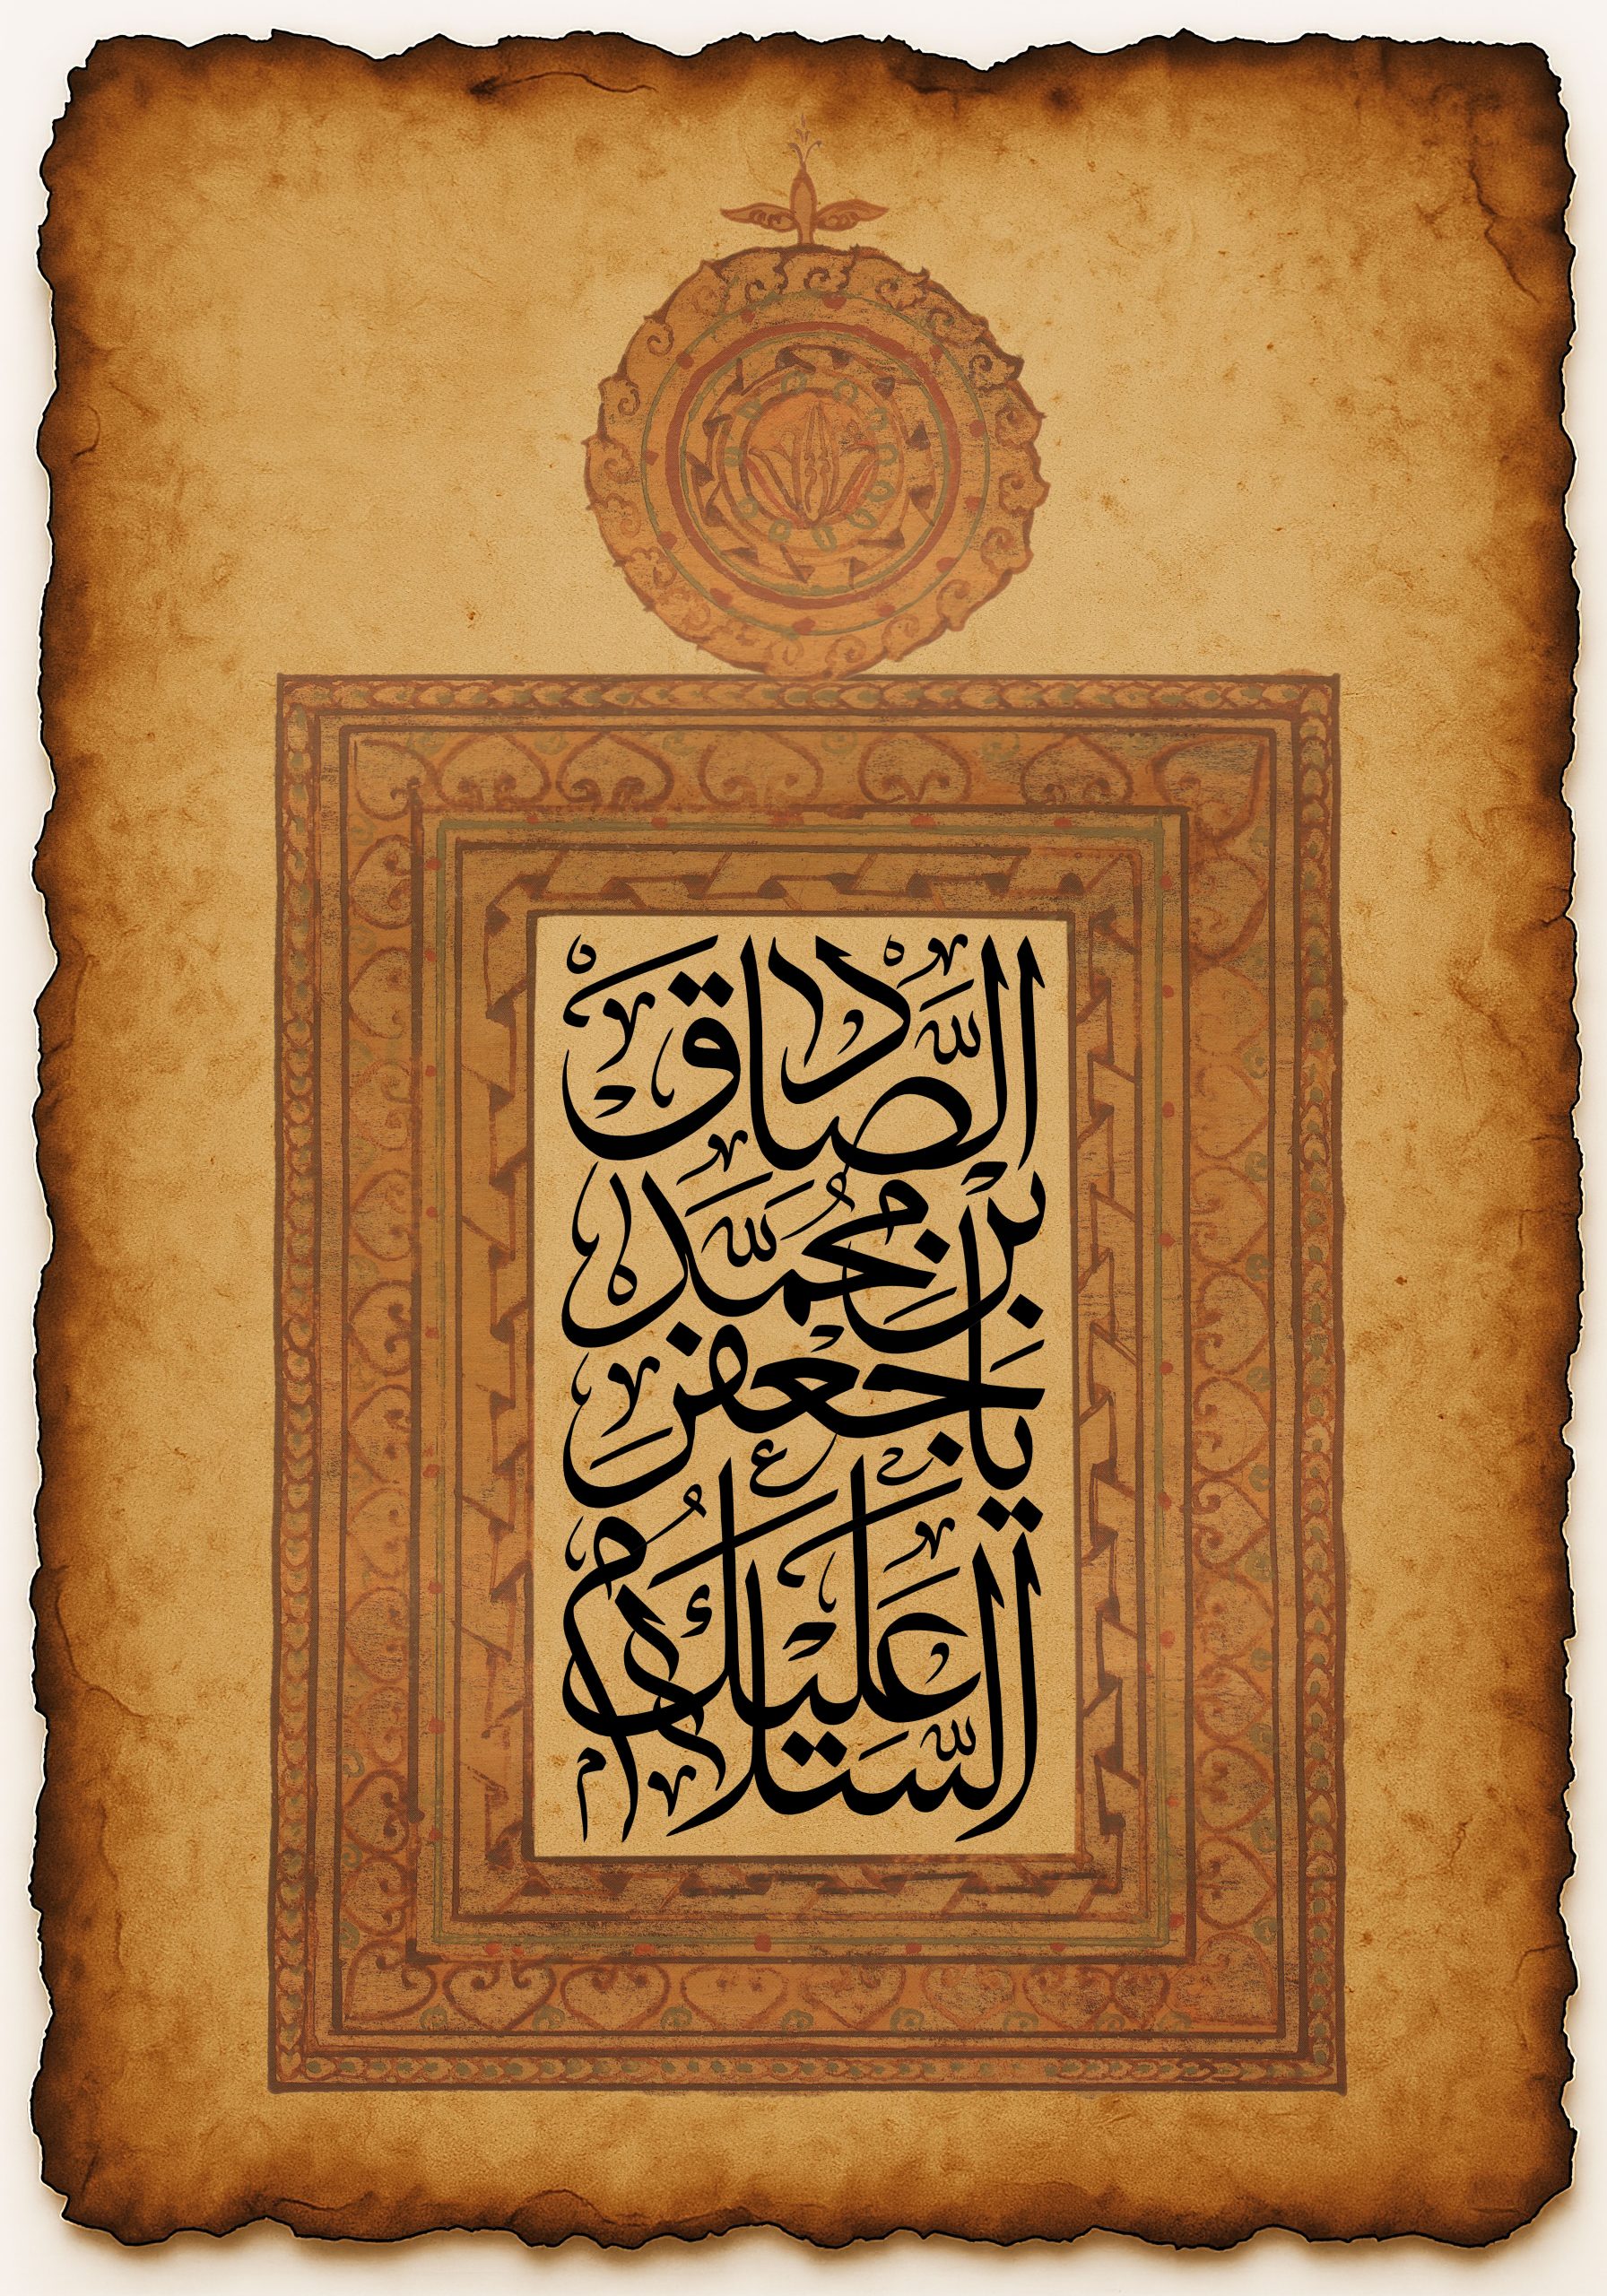 السلام عليك
يا جعفر
بن محمد
الصادق